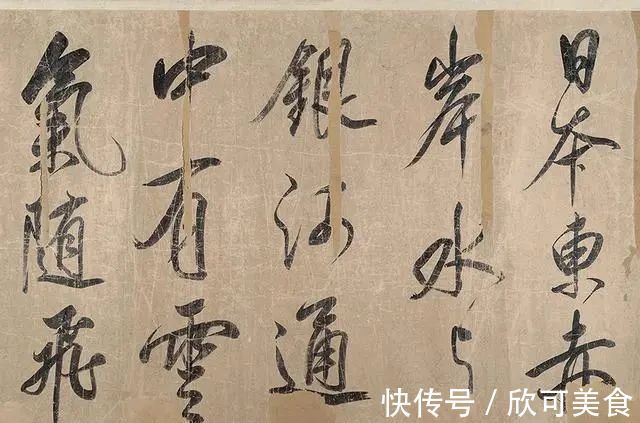 日本東赤
岸水与
銀河通
中有雲
氣随飛
快传号 / 欣可美食